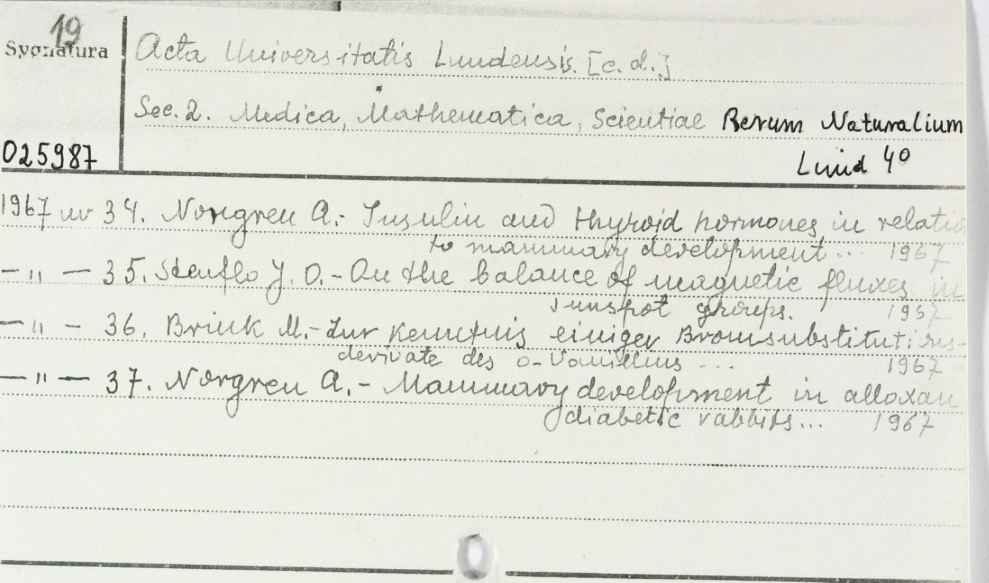 19
Sygnatura
Acta Universitatis Lundensis. [c. d.]
Sec. 2. Medica, Mathematica, Scientiae Rerum Naturalium
025987
Lund 4°
1967 nr 34. Norgren A.- Insulin and thyroid hormones in relatio
to mammary development... 1967
-"- 35. Stenflo J. O.- On the balance of magnetic fluxes in
sunspot groups. 1967
-"- 36. Brink M.- Zur Kenntnis einiger Bromsubstitutions-
derivate des o-Vanillins ... 1967
-"- 37. Norgren A.- Mammary development in alloxan
diabetic rabbits... 1967